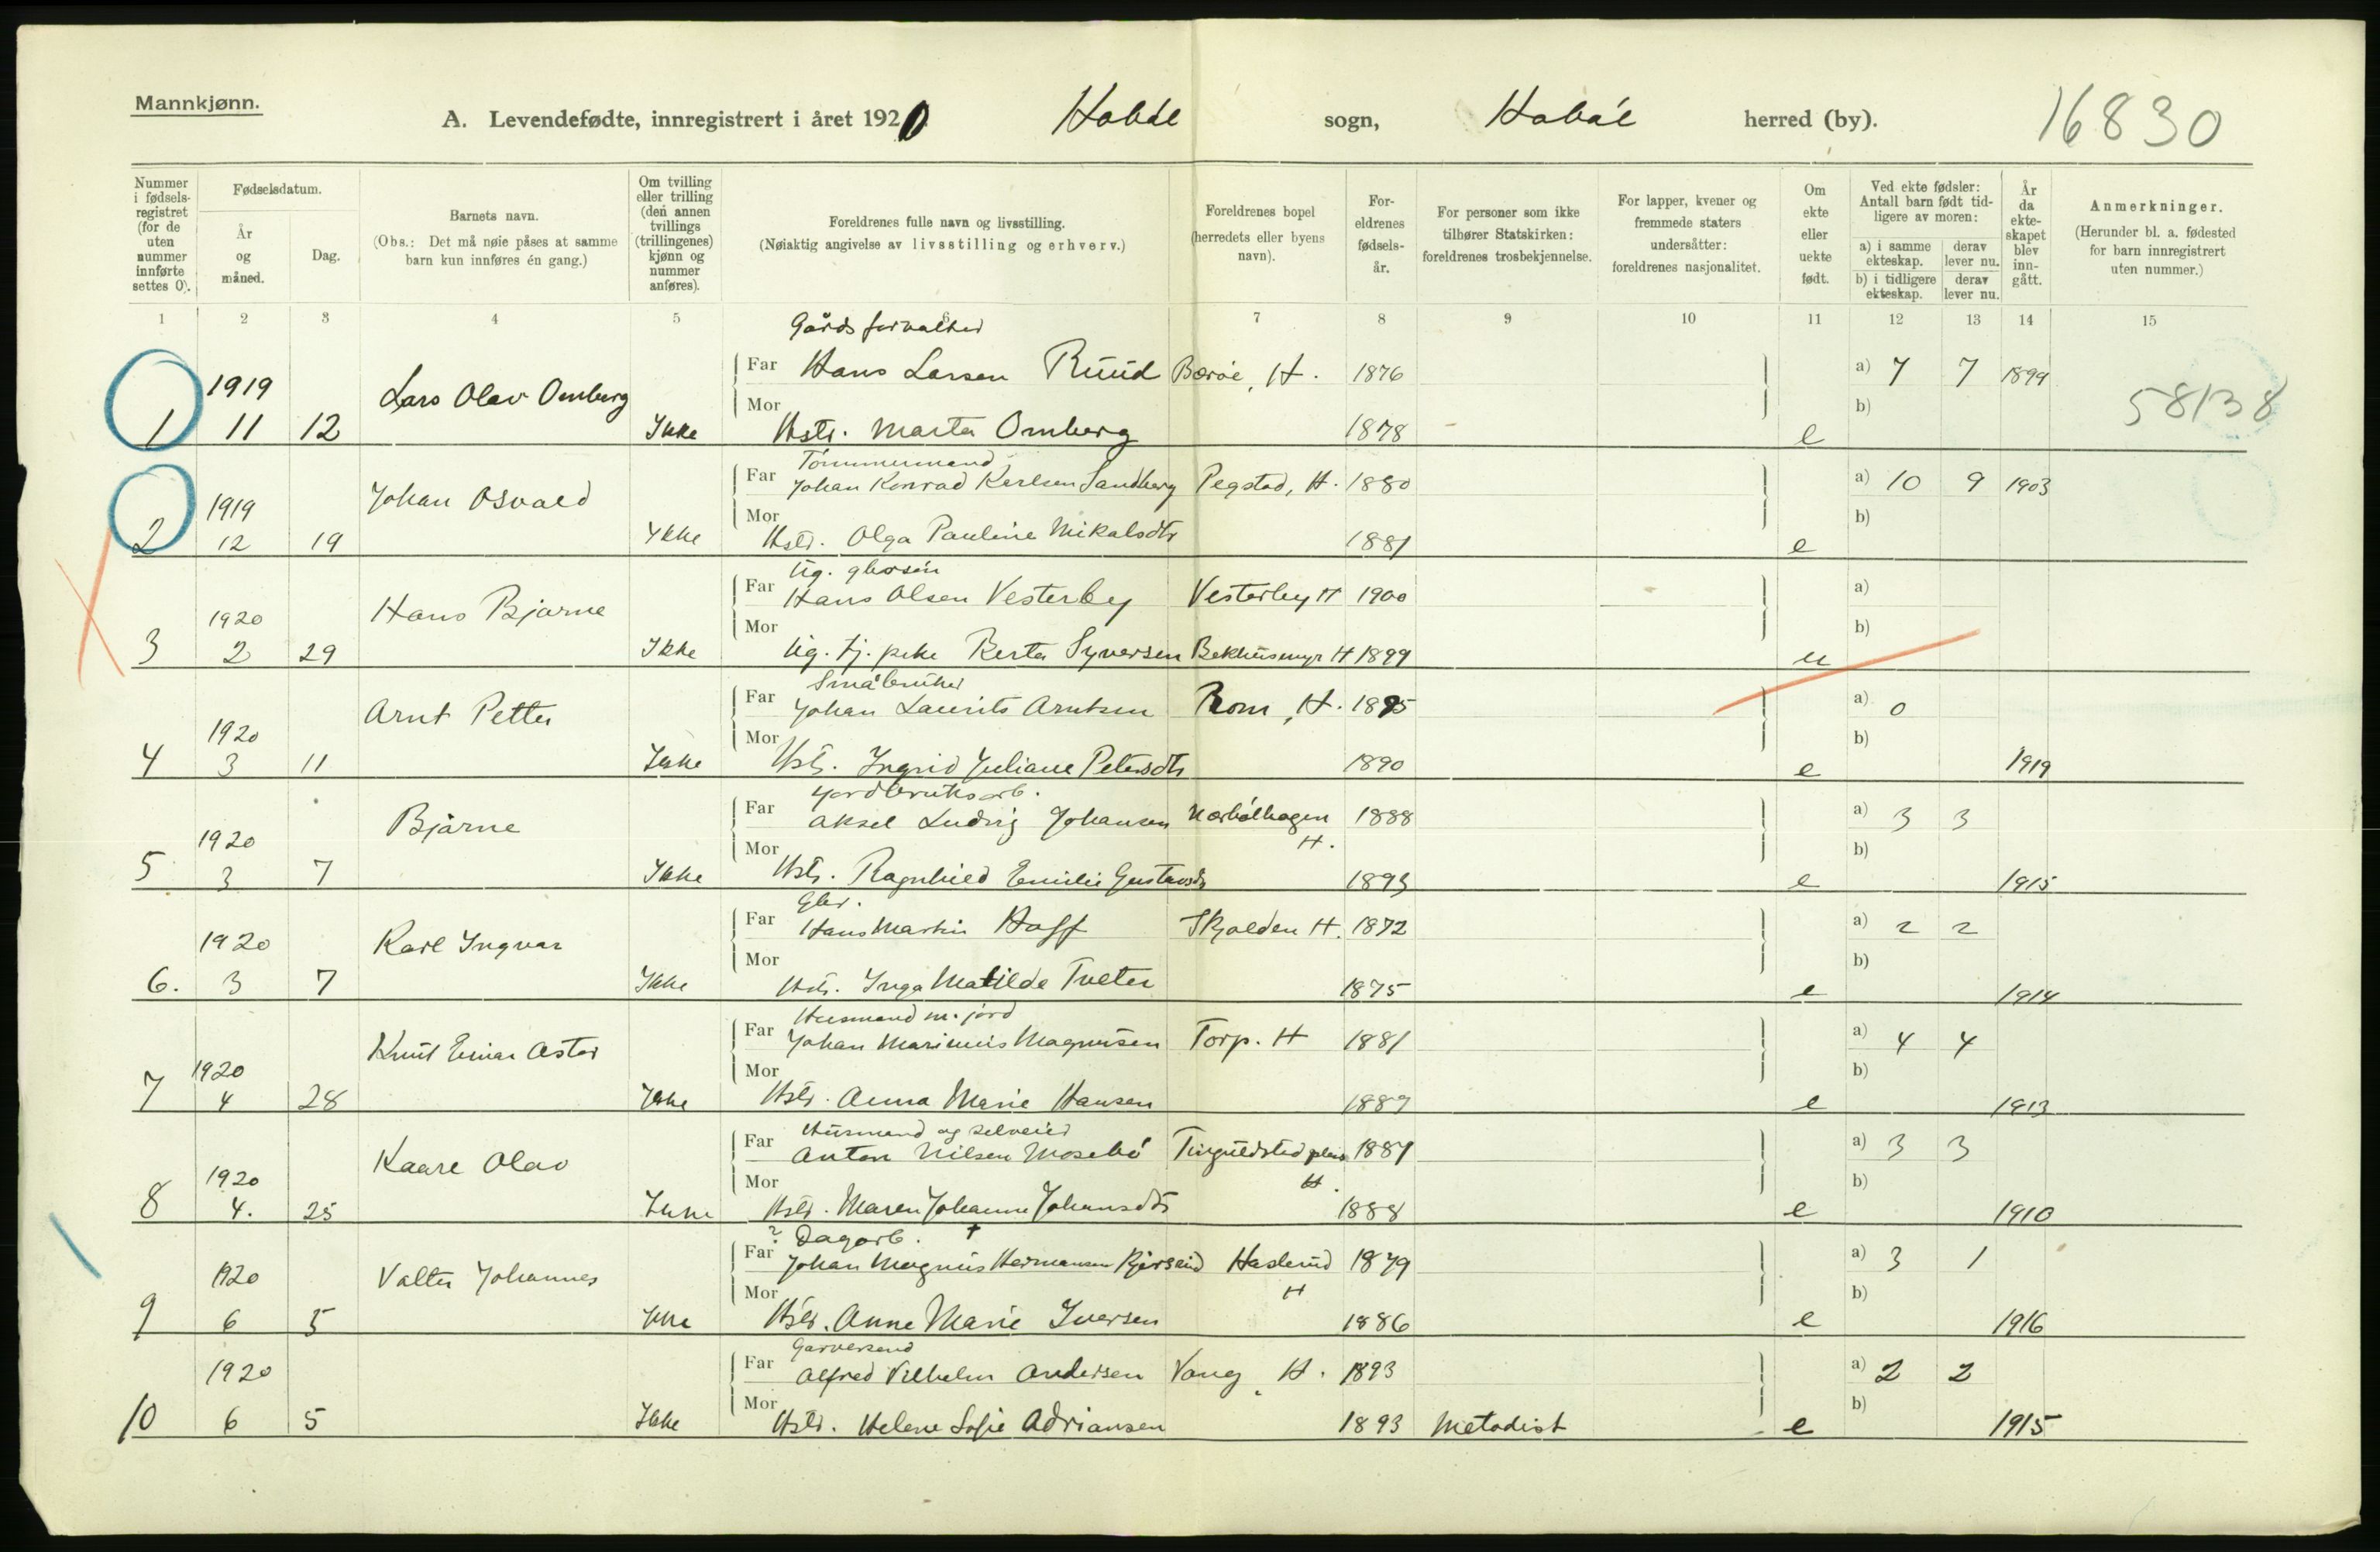 Mannkjønn.
A. Levendefødte, innregistrert i året 1920. Hobøl sogn, Hobøl herred (by). 16830
Nummer i fødsels-registret (for de uten nummer innførte settes 0).
Fødselsdatum.
År og måned.
Dag.
Barnets navn.
(Obs.: Det må nøie påses at samme barn kun innføres én gang.)
Om tvilling eller trilling (den annen tvillings (trillingenes) kjønn og nummer anføres).
Foreldrenes fulle navn og livsstilling.
(Nøiaktig angivelse av livsstilling og erhverv.)
Foreldrenes bopel (herredets eller byens navn).
For-eldrenes fødsels-år.
For personer som ikke tilhører Statskirken: foreldrenes trosbekjennelse.
For lapper, kvener og fremmede staters undersåtter: foreldrenes nasjonalitet.
Om ekte eller uekte født.
Ved ekte fødsler: Antall barn født tid-ligere av moren:
a) i samme ekteskap.
derav lever nu.
b) i tidligere ekteskap.
derav lever nu.
År da ekte-skapet blev inn-gått.
Anmerkninger.
(Herunder bl. a. fødested for barn innregistrert uten nummer.)
1 2 3 4 5 6 7 8 9 10 11 12 13 14 15
Gårdsforvalter
1919 Lars Olav Ornberg Far Hans Larsen Ruud H. 1876 a) 7 7 1899
58138
Mor b)
1 11 12 Ikke Hstr. Marta Ornberg 1878 e
Tømmermand
1919 Johan Osvald Far Johan Konrad Karlsen Sandberg Pegstad, H. 1880 a) 10 9 1903
Mor b)
2 12 19 Ikke Hstr. Olga Pauline Mikalsdtr 1881 e
Ug. gbrsøn
1920 Hans Bjarne Far Hans Olsen Vesterby Vesterby H 1900 a)
Mor b)
3 2 29 Ikke Ug. tj. pike Berta Syversen Bekhusmyr H 1899 u
Småbruker
1920 Arnt Petter Far Johan Laurits Arntsen Rom, H. 1895 a) 0
Mor b)
4 3 11 Ikke Hstr. Ingrid Juliane Petersdtr 1890 e 1919
Jordbruksarb.
1920 Bjarne Far Aksel Ludvig Johansen H. 1888 a) 3 3
Mor b)
5 3 7 Ikke Hstr. Ragnhild Emilie Gustavsdtr 1893 e 1915
Gbr.
1920 Karl Ingvar Far Hans Martin Hoff Skjolden H. 1872 a) 2 2
Mor b)
6. 3 7 Ikke Hstr. Inga Matilde Tveter 1875 e 1914
Husmand m. jord
1920 Knut Einar Astor Far Johan Marinius Magnusen Torp. H 1881 a) 4 4
Mor b)
7 4 28 Ikke Hstr. Anna Marie Hansen 1889 e 1913
Husmand og selveier
1920 Kaare Olav Far Anton Nilsen Mosebø H. 1887 a) 3 3
Mor b)
8 4. 25 Ikke Hstr. Maren Johanne Johansdtr 1888 e 1910
? Dagarb. †
1920 Valter Johannes Far Johan Magnus Hermansen Haslerud H 1879 a) 3 1
Mor b)
9 6 5 Ikke Hstr. Anne Marie Iversen 1886 e 1916
Garversvend
1920 Far Alfred Vilhelm Andersen Vang, H. 1893 a) 2 2
Mor b)
10 6 5 Ikke Hstr. Helene Sofie Adriansen 1893 Metodist e 1915